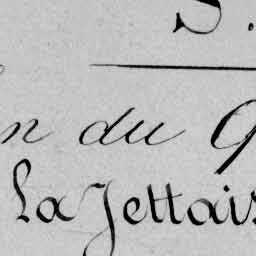 S.
n du 9
La Jettais